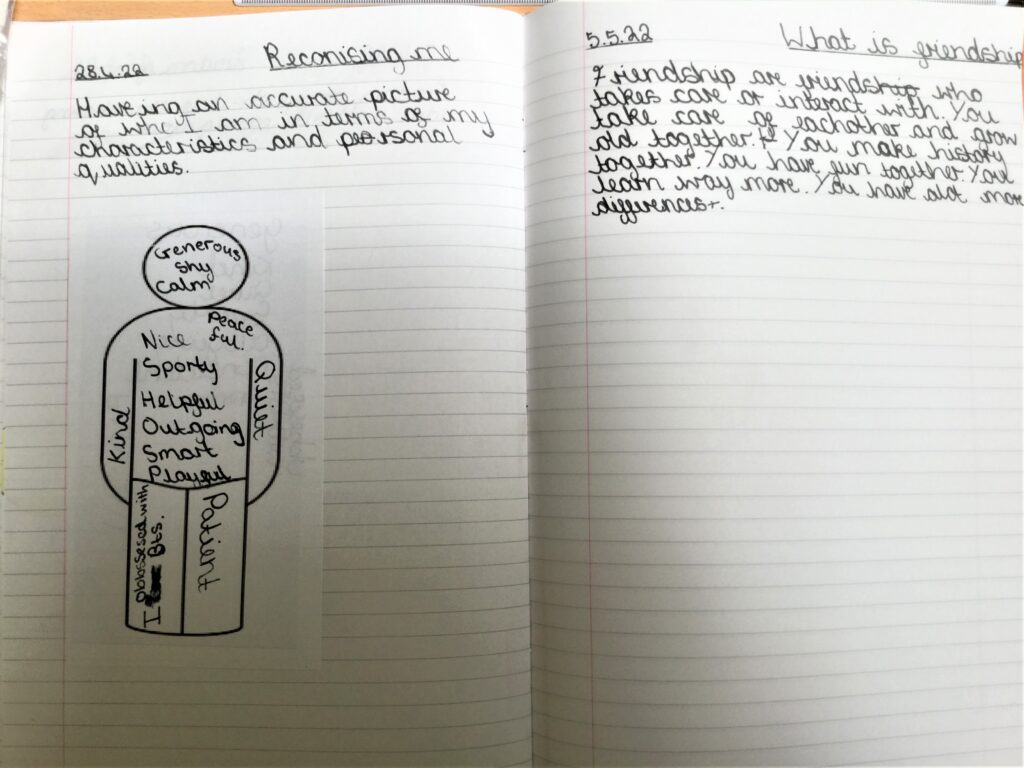 28.4.22
Reconising me
Haveing an accurate picture
of who I am in terms of my
characteristics and personal
qualities.
Generous
Shy
Calm
Peace
ful.
Nice
Sporty
Helpful
Outgoing
Smart
Playful
Kind
Quiet
I obbssesed with
Bts.
Patient
5.5.22
What is friendship
Friendship are friendship who
takes care or interact with. You
take care of eachother and grow
old together. You make history
together. You have fun together. You
learn way more. You have alot more
differences.